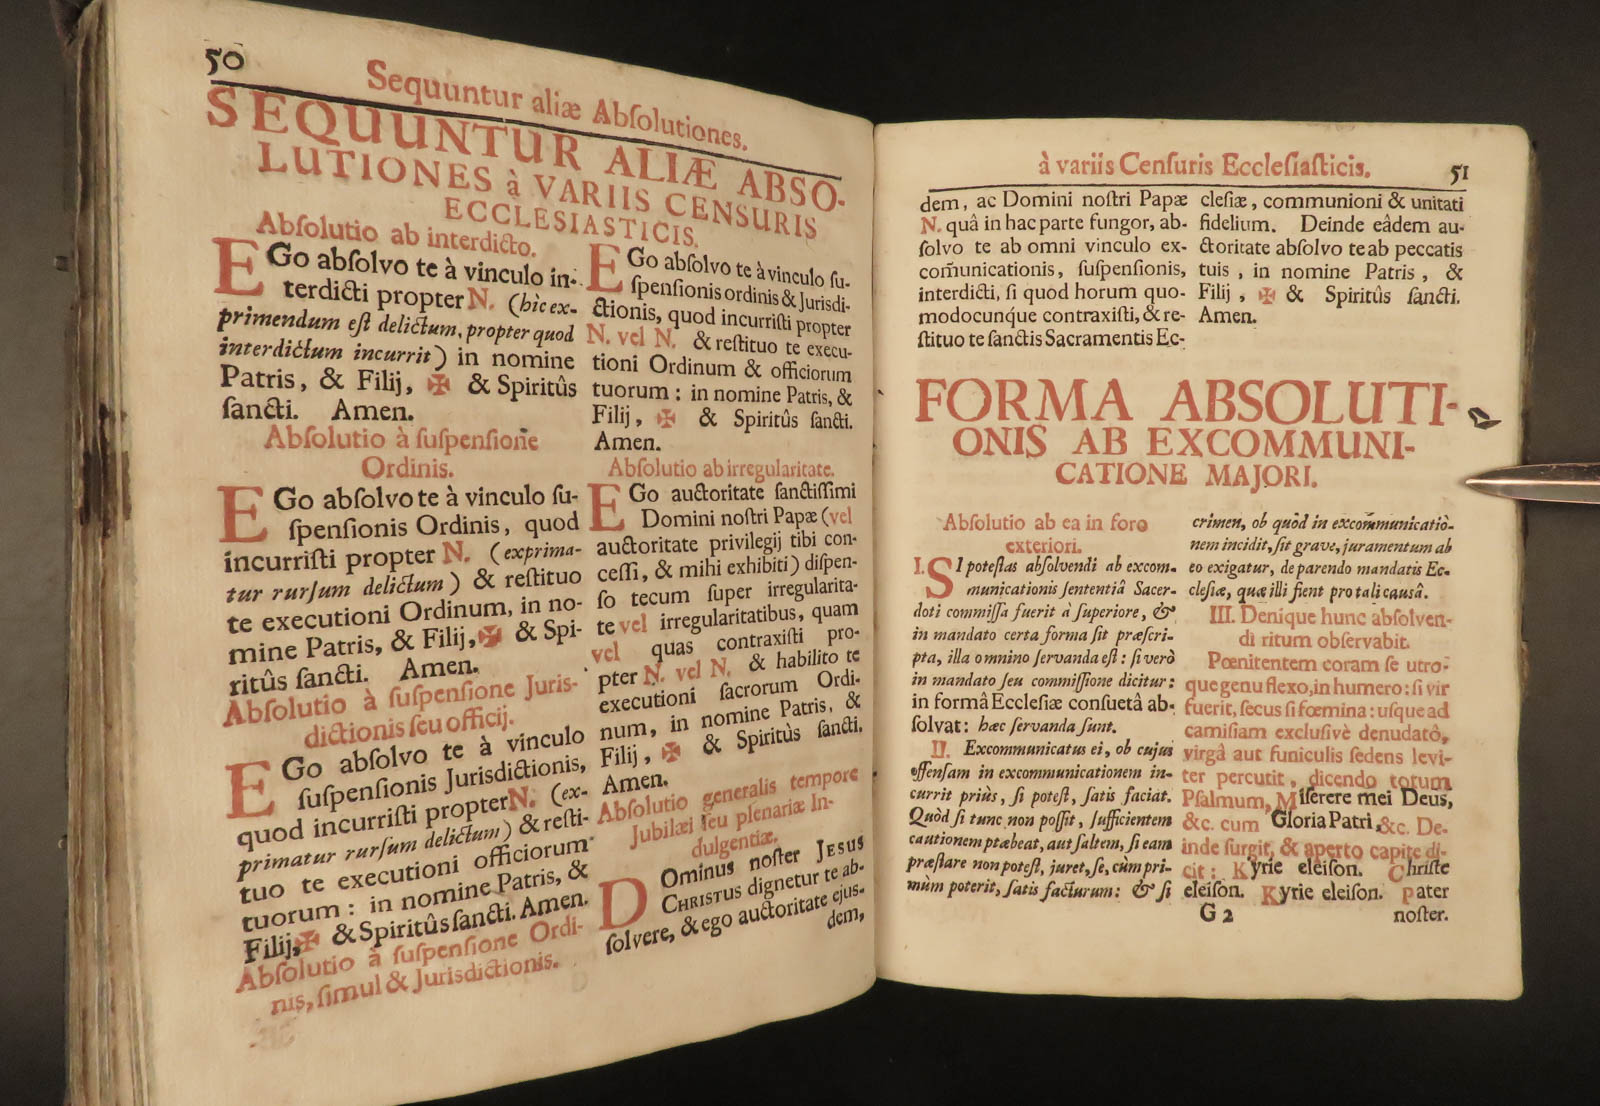 50
Sequuntur aliæ Abſolutiones.
SEQUUNTUR ALIÆ ABSO-
LUTIONES à VARIIS CENSURIS
ECCLESIASTICIS.
Abſolutio ab interdicto.
EGo abſolvo te à vinculo in-
terdicti propter N. (hic ex-
primendum eſt delictum, propter quod
interdictum incurrit) in nomine
Patris, & Filij, ✠ & Spiritûs
ſancti. Amen.
Abſolutio à ſuſpenſione
Ordinis.
EGo abſolvo te à vinculo ſu-
ſpenſionis Ordinis, quod
incurriſti propter N. (exprima-
tur rurſum delictum) & reſtituo
te executioni Ordinum, in no-
mine Patris, & Filij, ✠ & Spi-
ritûs ſancti. Amen.
Abſolutio à ſuſpenſione Juris-
dictionis ſeu officij.
EGo abſolvo te à vinculo
ſuſpenſionis Jurisdictionis,
quod incurriſti propter N. (ex-
primatur rurſum delictum) & reſti-
tuo te executioni officiorum
tuorum: in nomine Patris, &
Filij, ✠ & Spiritûs ſancti. Amen.
Abſolutio à ſuſpenſione Ordi-
nis, ſimul & Jurisdictionis.
EGo abſolvo te à vinculo ſu-
ſpenſionis ordinis & Jurisdi-
ctionis, quod incurriſti propter
N. vel N. & reſtituo te execu-
tioni Ordinum & officiorum
tuorum: in nomine Patris, &
Filij, ✠ & Spiritûs ſancti.
Amen.
Abſolutio ab irregularitate.
EGo auctoritate ſanctiſſimi
Domini noſtri Papæ (vel
auctoritate privilegij tibi con-
ceſſi, & mihi exhibiti) diſpen-
ſo tecum ſuper irregularita-
te vel irregularitatibus, quam
vel quas contraxiſti pro-
pter N. vel N. & habilito te
executioni ſacrorum Ordi-
num, in nomine Patris, &
Filij, ✠ & Spiritùs ſancti.
Amen.
Abſolutio generalis tempore
Jubilæi ſeu plenariæ In-
dulgentiæ.
DOminus noſter JESUS
CHRISTUS dignetur te ab-
ſolvere, & ego auctoritate ejus-
dem,
à variis Cenſuris Eccleſiaſticis.
51
dem, ac Domini noſtri Papæ
N. quâ in hac parte fungor, ab-
ſolvo te ab omni vinculo ex-
com̃unicationis, ſuſpenſionis,
interdicti, ſi quod horum quo-
modocunque contraxiſti, & re-
ſtituo te ſanctis Sacramentis Ec-
cleſiæ, communioni & unitati
fidelium. Deinde eâdem au-
ctoritate abſolvo te ab peccatis
tuis, in nomine Patris, &
Filij, ✠ & Spiritûs ſancti.
Amen.
FORMA ABSOLUTI-
ONIS AB EXCOMMUNI-
CATIONE MAJORI.
Abſolutio ab ea in foro
exteriori.
I. SI poteſtas abſolvendi ab excom-
municationis ſententiâ Sacer-
doti commiſſa fuerit à ſuperiore, &
in mandato certa forma ſit præſcri-
pta, illa omnino ſervanda eſt: ſi verò
in mandato ſeu commiſſione dicitur:
in formâ Eccleſiæ conſuetâ ab-
ſolvat: hæc ſervanda ſunt.
II. Excommunicatus ei, ob cujus
offenſam in excommunicationem in-
currit priùs, ſi poteſt, ſatis faciat.
Quòd ſi tunc non poſſit, ſufficientem
cautionem præbeat, aut ſaltem, ſi eam
præſtare non poteſt, juret, ſe, cùm pri-
mùm poterit, ſatis facturum: & ſi
crimen, ob quòd in excommunicatiò-
nem incidit, ſit grave, juramentum ab
eo exigatur, de parendo mandatis Ec-
cleſiæ, quæ illi fient pro tali causâ.
III. Denique hunc abſolven-
di ritum obſervabit.
Pœnitentem coram ſe utro-
que genu flexo, in humero: ſi vir
fuerit, ſecus ſi fœmina: uſque ad
camiſiam excluſivè denudatô,
virgâ aut funiculis ſedens levi-
ter percutit, dicendo totum
Pſalmum, Miſerere mei Deus,
&c. cum Gloria Patri, &c. De-
inde ſurgit, & aperto capite di-
cit: Kyrie eleiſon. Chriſte
eleiſon. Kyrie eleiſon. Pater
G 2
noſter.